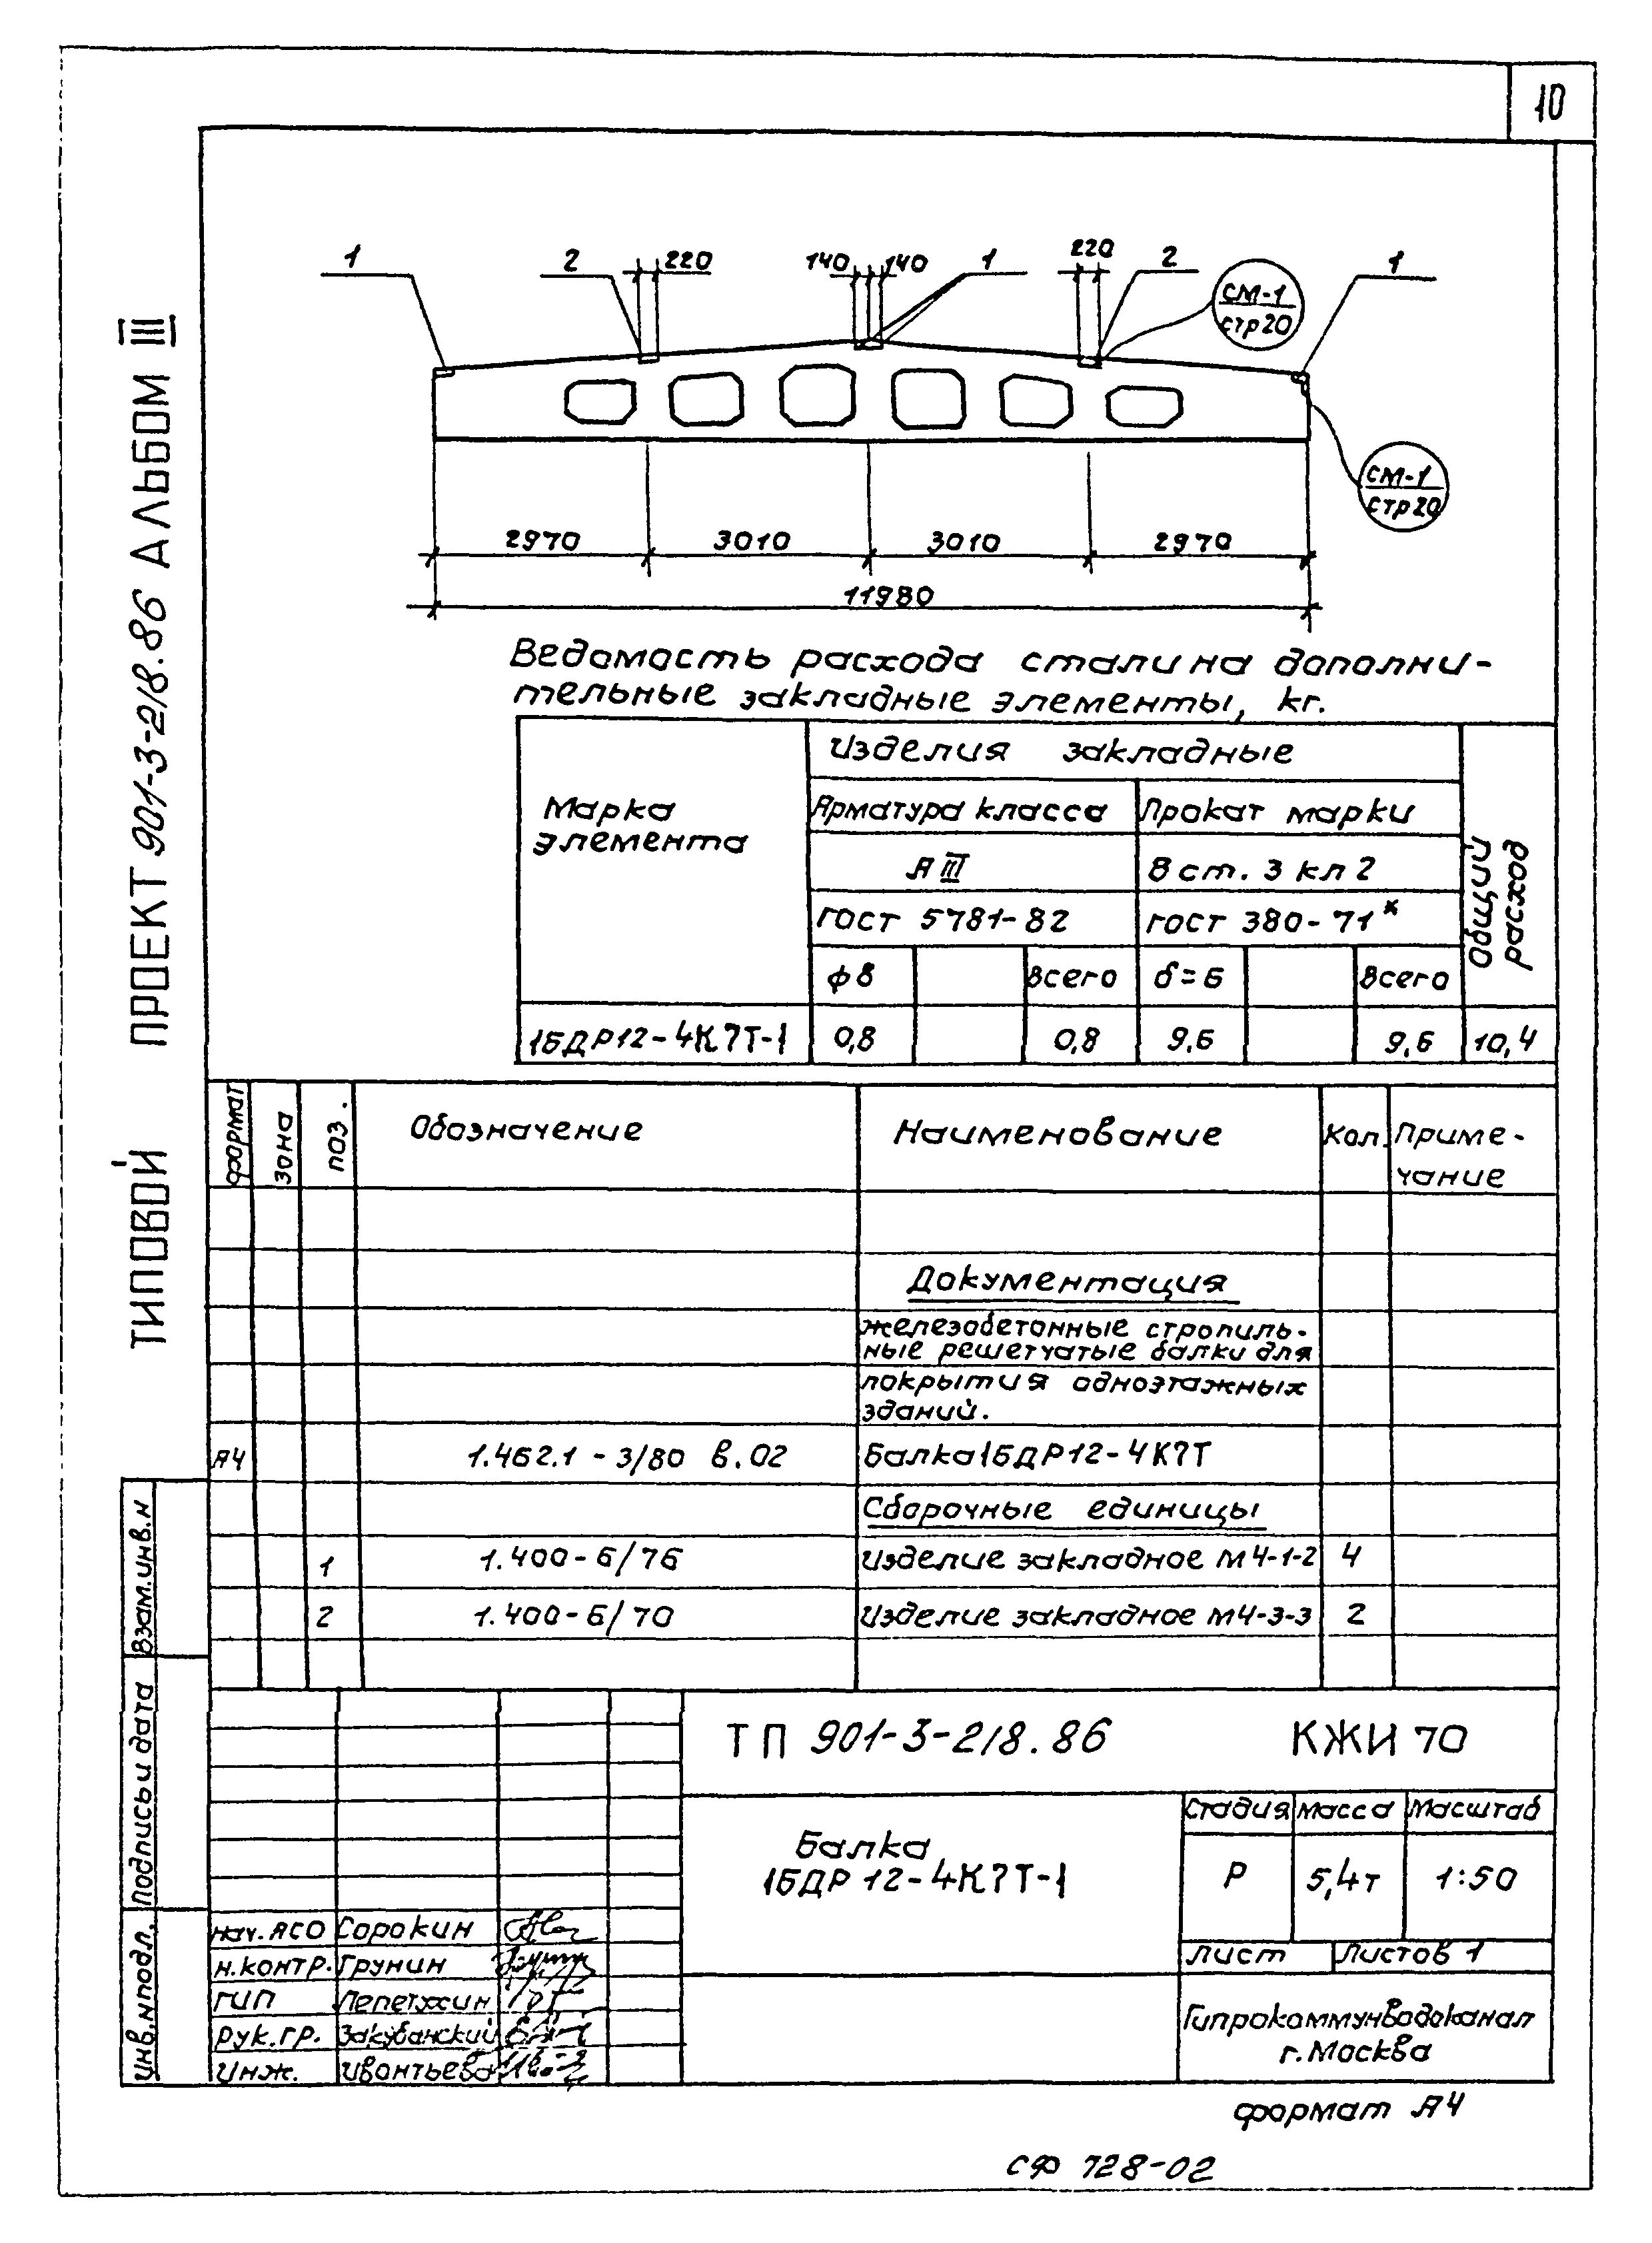 10
ТИПОВОЙ ПРОЕКТ 901-3-218.86 АЛЬБОМ III
1 2 220 140 140 1 220 2 1
СМ-1
стр 20
СМ-1
стр 20
2970 3010 3010 2970
11980
Ведомость расхода стали на дополни-
тельные закладные элементы, кг.
Марка
элемента
Изделия закладные
Общий
расход
Арматура класса Прокат марки
А III В ст. 3 кл 2
ГОСТ 5781-82 ГОСТ 380-71*
ф8 всего б=6 всего
1БДР12-4К7Т-1 0,8 0,8 9,6 9,6 10,4
формат зона поз. Обозначение Наименование Кол. Приме-
чание
Документация
железобетонные стропиль-
ные решетчатые балки для
покрытия одноэтажных
зданий.
А4 1.462.1-3/80 в.02 Балка 1БДР12-4К7Т
Сборочные единицы
1 1.400-6/76 Изделие закладное М4-1-2 4
2 1.400-6/70 Изделие закладное М4-3-3 2
Взам.инв.н
Подпись и дата
Инв.нподл.
ТП 901-3-218.86 КЖИ 70
Балка
1БДР 12-4К7Т-1
Стадия масса Масштаб
Р 5,4т 1:50
лист Листов 1
Гипрокоммунводоканал
г. Москва
нач. АСО Сорокин
н.контр. Грунин
ГИП Лепетухин
рук.гр. Закубанский
Инж. Ивонтьева
формат А4
СФ 728-02